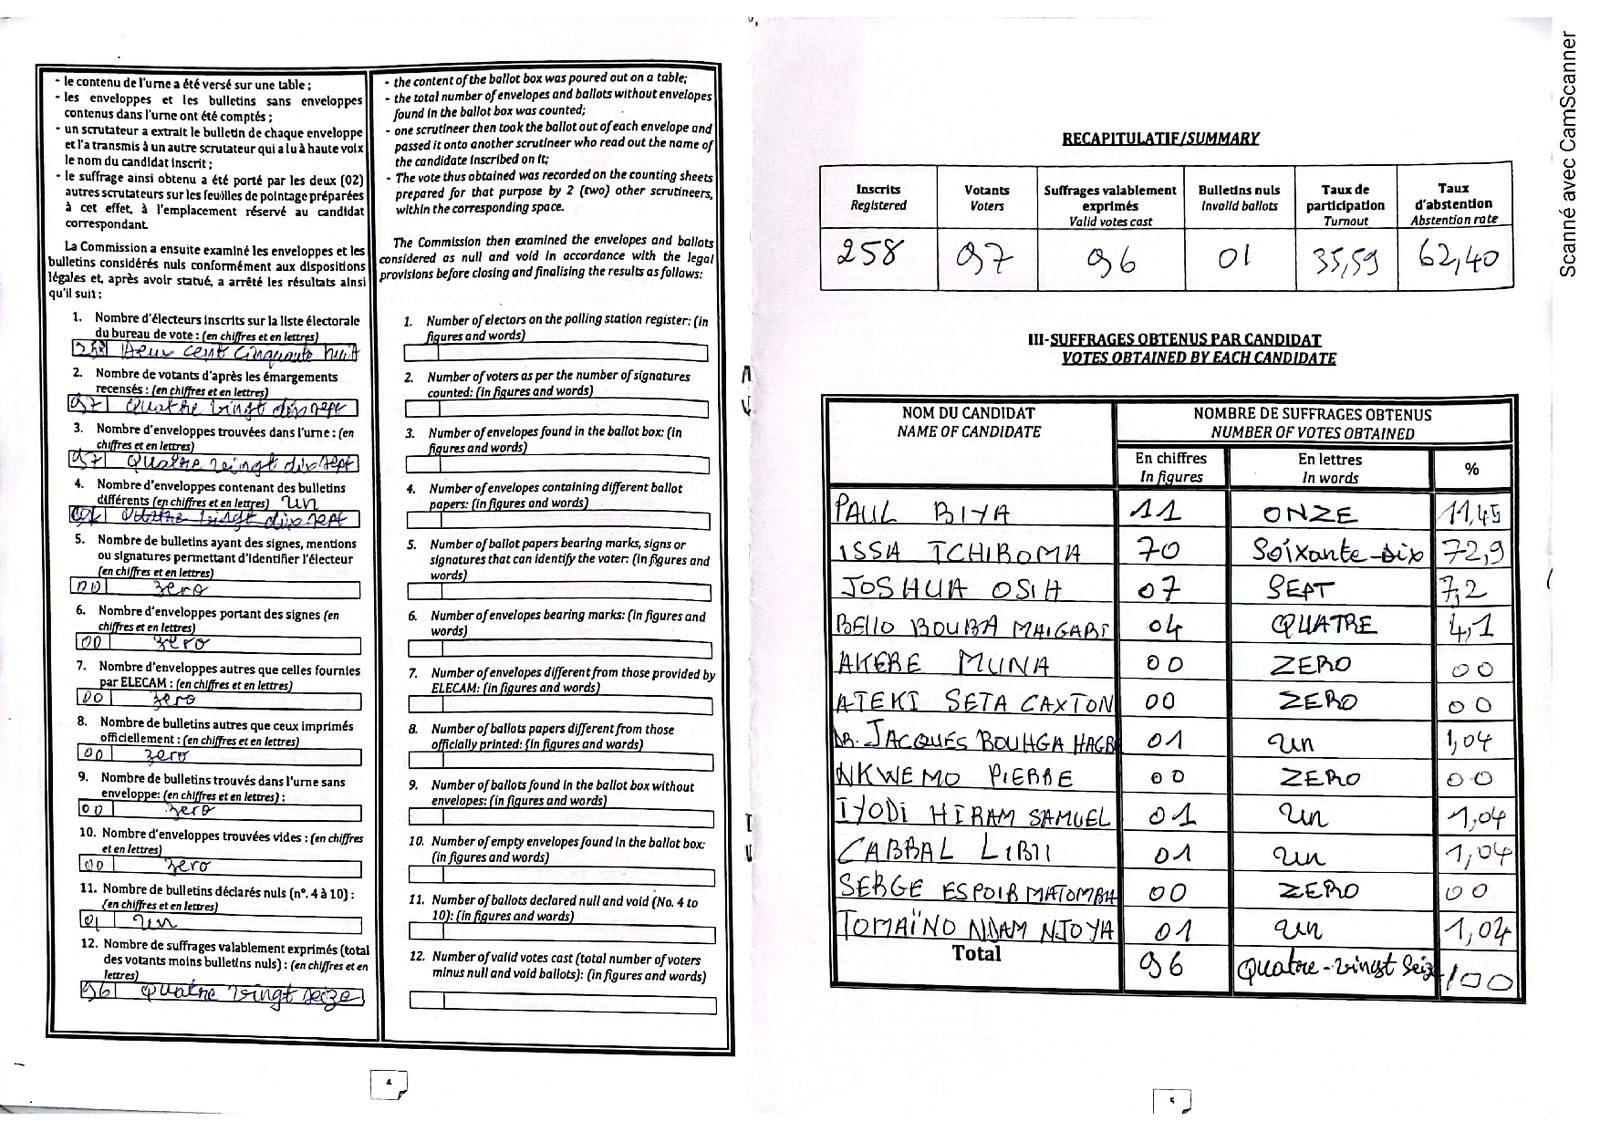 - le contenu de l'urne a été versé sur une table ;
- les enveloppes et les bulletins sans enveloppes
contenus dans l'urne ont été comptés ;
- un scrutateur a extrait le bulletin de chaque enveloppe
et l'a transmis à un autre scrutateur qui a lu à haute voix
le nom du candidat inscrit ;
- le suffrage ainsi obtenu a été porté par les deux (02)
autres scrutateurs sur les feuilles de pointage préparées
à cet effet, à l'emplacement réservé au candidat
correspondant.
La Commission a ensuite examiné les enveloppes et les
bulletins considérés nuls conformément aux dispositions
légales et, après avoir statué, a arrêté les résultats ainsi
qu'il suit :
1. Nombre d'électeurs inscrits sur la liste électorale
du bureau de vote : (en chiffres et en lettres)
258 deux cent cinquante huit
2. Nombre de votants d'après les émargements
recensés : (en chiffres et en lettres)
97 quatre vingt dix sept
3. Nombre d'enveloppes trouvées dans l'urne : (en
chiffres et en lettres)
97 quatre vingt dix sept
4. Nombre d'enveloppes contenant des bulletins
différents (en chiffres et en lettres) un
quatre vingt dix sept
5. Nombre de bulletins ayant des signes, mentions
ou signatures permettant d'identifier l'électeur
(en chiffres et en lettres)
00 zero
6. Nombre d'enveloppes portant des signes (en
chiffres et en lettres)
00 zero
7. Nombre d'enveloppes autres que celles fournies
par ELECAM : (en chiffres et en lettres)
00 zero
8. Nombre de bulletins autres que ceux imprimés
officiellement : (en chiffres et en lettres)
00 zero
9. Nombre de bulletins trouvés dans l'urne sans
enveloppe: (en chiffres et en lettres) :
00 zero
10. Nombre d'enveloppes trouvées vides : (en chiffres
et en lettres)
00 zero
11. Nombre de bulletins déclarés nuls (n°. 4 à 10) :
(en chiffres et en lettres)
01 un
12. Nombre de suffrages valablement exprimés (total
des votants moins bulletins nuls) : (en chiffres et en
lettres)
96 quatre vingt seize
- the content of the ballot box was poured out on a table;
- the total number of envelopes and ballots without envelopes
found in the ballot box was counted;
- one scrutineer then took the ballot out of each envelope and
passed it onto another scrutineer who read out the name of
the candidate inscribed on it;
- The vote thus obtained was recorded on the counting sheets
prepared for that purpose by 2 (two) other scrutineers,
within the corresponding space.
The Commission then examined the envelopes and ballots
considered as null and void in accordance with the legal
provisions before closing and finalising the results as follows:
1. Number of electors on the polling station register: (in
figures and words)
2. Number of voters as per the number of signatures
counted: (in figures and words)
3. Number of envelopes found in the ballot box: (in
figures and words)
4. Number of envelopes containing different ballot
papers: (in figures and words)
5. Number of ballot papers bearing marks, signs or
signatures that can identify the voter: (in figures and
words)
6. Number of envelopes bearing marks: (in figures and
words)
7. Number of envelopes different from those provided by
ELECAM: (in figures and words)
8. Number of ballots papers different from those
officially printed: (in figures and words)
9. Number of ballots found in the ballot box without
envelopes: (in figures and words)
10. Number of empty envelopes found in the ballot box:
(in figures and words)
11. Number of ballots declared null and void (No. 4 to
10): (in figures and words)
12. Number of valid votes cast (total number of voters
minus null and void ballots): (in figures and words)
4
RECAPITULATIF/SUMMARY
Inscrits Registered
Votants Voters
Suffrages valablement exprimés Valid votes cast
Bulletins nuls Invalid ballots
Taux de participation Turnout
Taux d'abstention Abstention rate
258 97 96 01 35,59 62,40
III-SUFFRAGES OBTENUS PAR CANDIDAT
VOTES OBTAINED BY EACH CANDIDATE
NOM DU CANDIDAT
NAME OF CANDIDATE
NOMBRE DE SUFFRAGES OBTENUS
NUMBER OF VOTES OBTAINED
En chiffres In figures
En lettres In words
%
PAUL BIYA 11 ONZE 11,45
ISSA TCHIROMA 70 Soixante-dix 72,9
JOSHUA OSIH 07 SEPT 7,2
BELLO BOUBA MAIGARI 04 QUATRE 4,1
AKERE MUNA 00 ZERO 00
ATEKI SETA CAXTON 00 ZERO 00
DR. JACQUES BOUHGA HAGB 01 un 1,04
NKWEMO PIERRE 00 ZERO 00
IYODI HIRAM SAMUEL 01 un 1,04
CABRAL LIBII 01 un 1,04
SERGE ESPOIR MATOMBA 00 ZERO 00
TOMAÏNO NDAM NJOYA 01 un 1,04
Total 96 quatre-vingt seize 100
5
Scanné avec CamScanner